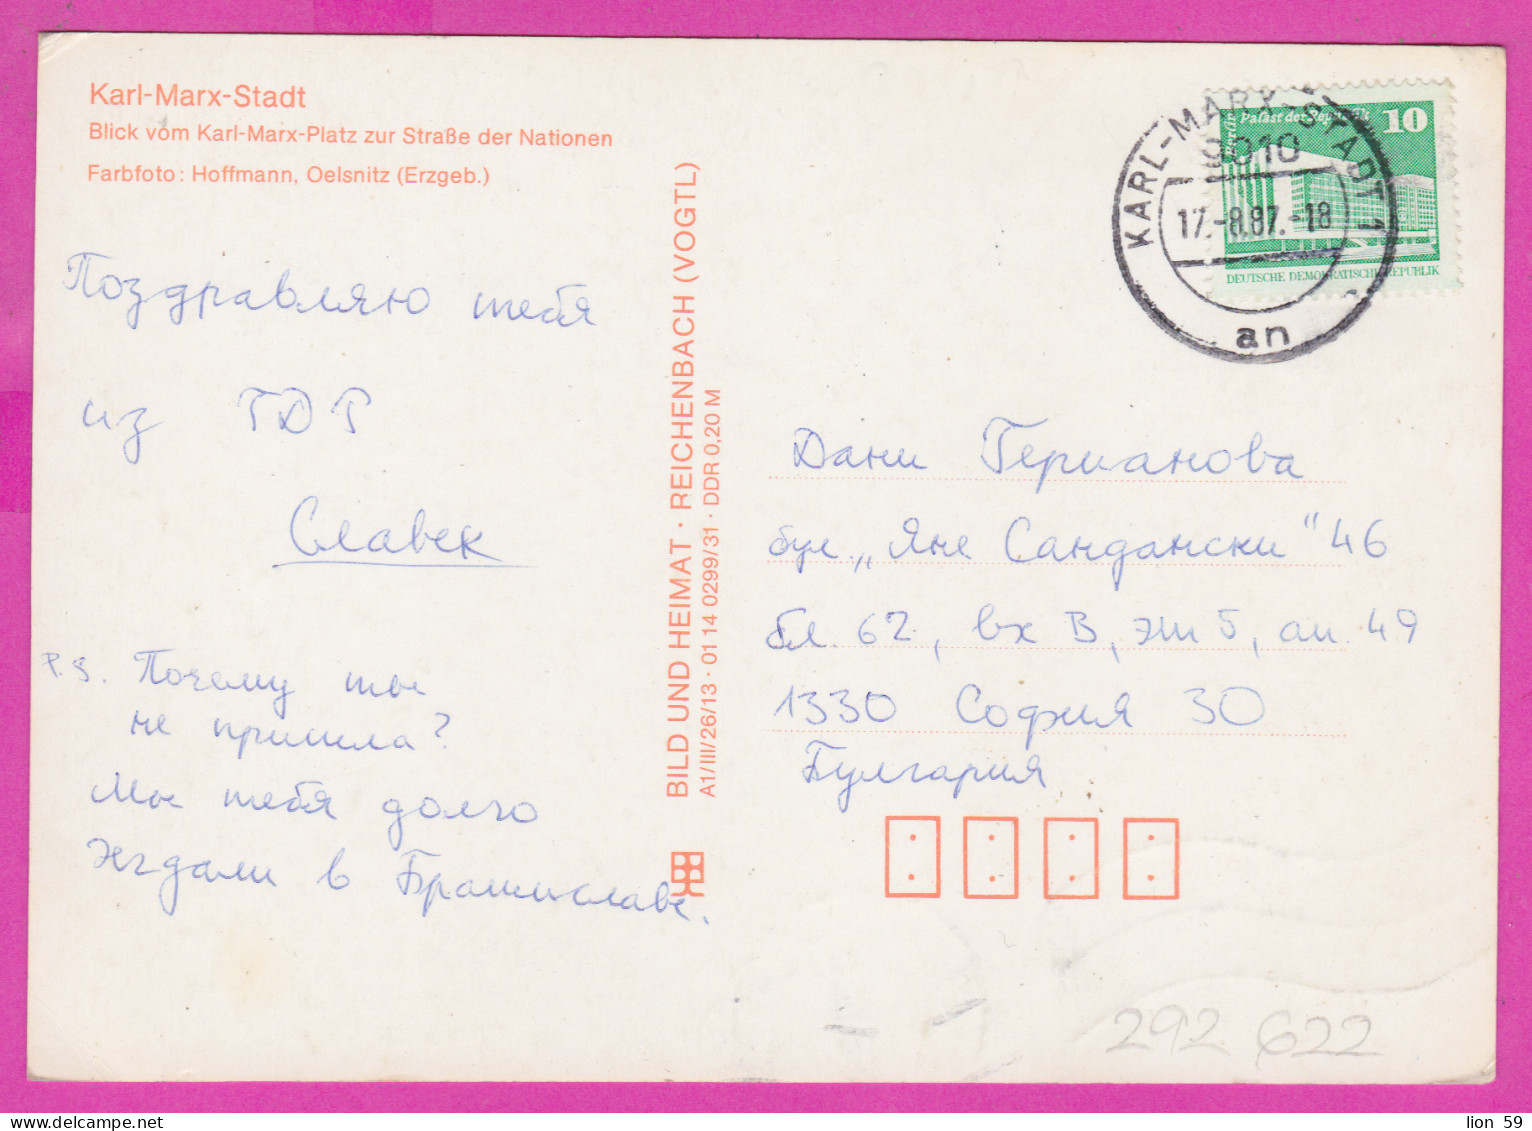 Karl-Marx-Stadt
Blick vom Karl-Marx-Platz zur Straße der Nationen
Farbfoto: Hoffmann, Oelsnitz (Erzgeb.)
Поздравляю тебя
из ГДР
Славек
P.S. Почему ты
не пришла?
Мы тебя долго
ждали в Братиславе.
BILD UND HEIMAT · REICHENBACH (VOGTL)
A1/III/26/13 · 01 14 0299/31 · DDR 0,20 M
Berlin Palast der Republik 10
DEUTSCHE DEMOKRATISCHE REPUBLIK
KARL-MARX-STADT 1
9010
17.-8.87.-18
an
Дани Германова
бул. „Яне Сандански" 46
бл. 62, вх В, эт 5, ап. 49
1330 София 30
Булгария
292 622
lion 59